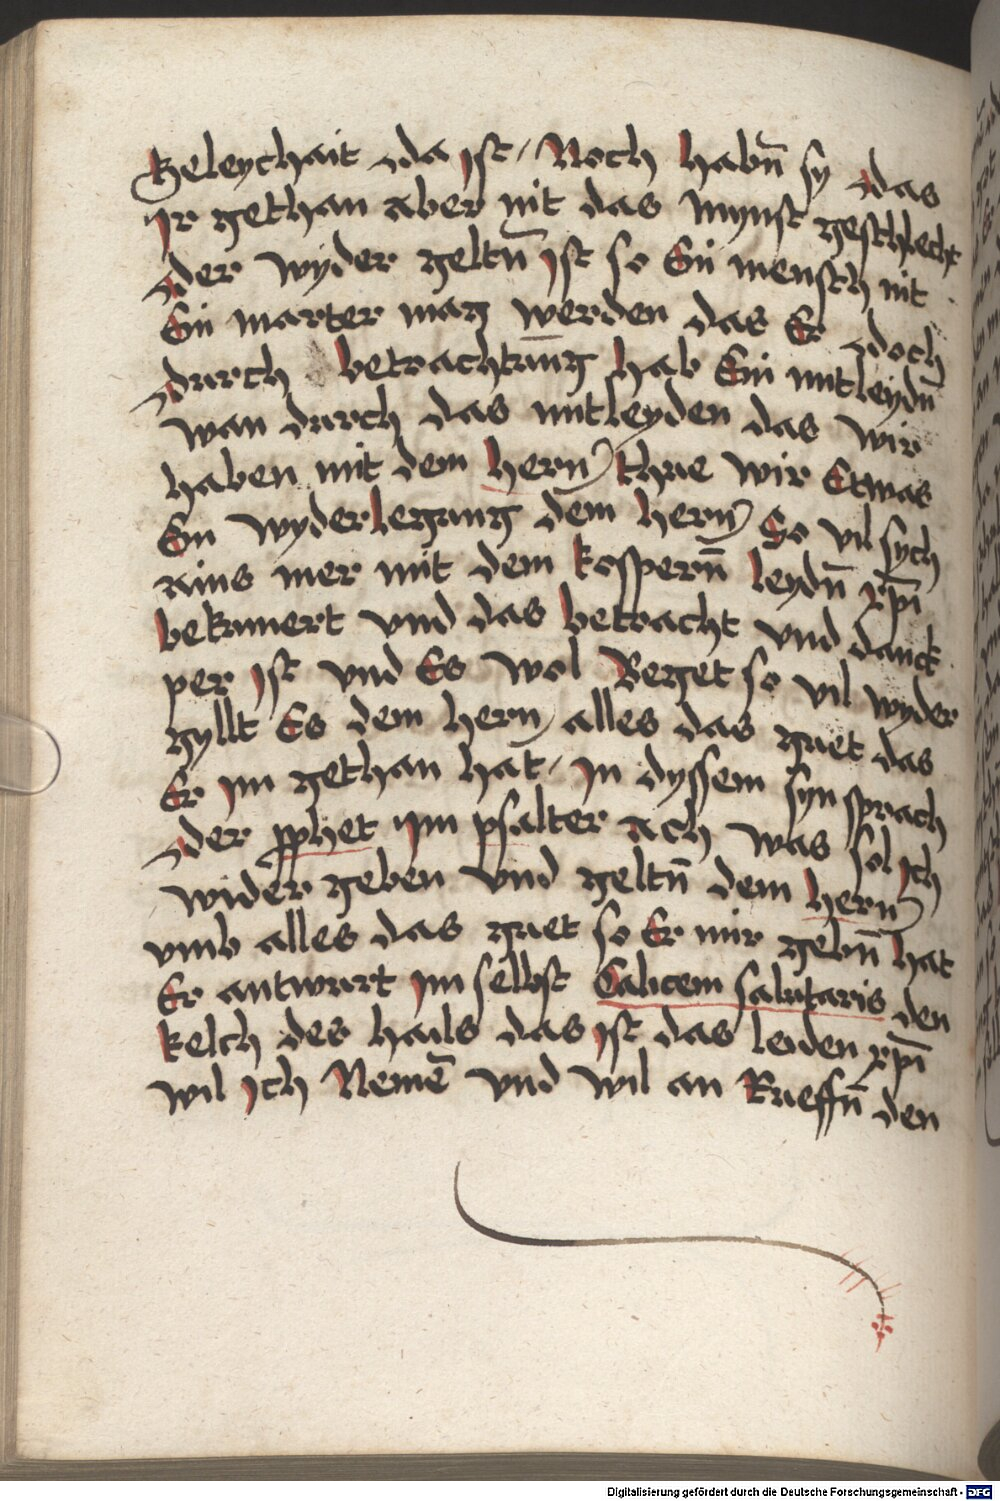 keleychait da ist / Noch habn̄ sy das
ir gethan aber nit das mynst geschlecht
der wyder geltn̄ ist so Ein mensch nit
Ein marter mag werden das Er doch
durch betrachtūng hab Ein mitleydn̄
wan durch das mitleyden das wir
haben mit dem hern thue wir Etwas
Ein wyderlegung dem hern So vil sych
ains mer mit dem kosspern̄ leydn̄ xp̄i
bekumert vnd das betracht vnd danck
per ist vnd Es wol Beget so vil wyder
gyllt Es dem hern alles das guet das
Er im gethan hat / in dyssem syn sprach
der pphet iim psalter ach was sol ich
wider geben vnd geltn̄ dem hern
vmb alles das guet so Er mir gebn̄ hat
Er antwurt im selbst Calicem salutaris den
kelch des hails das ist das leiden xp̄i
wil ich Nemē vnd wil an Rueffn̄ den
Digitalisierung gefördert durch die Deutsche Forschungsgemeinschaft - DFG